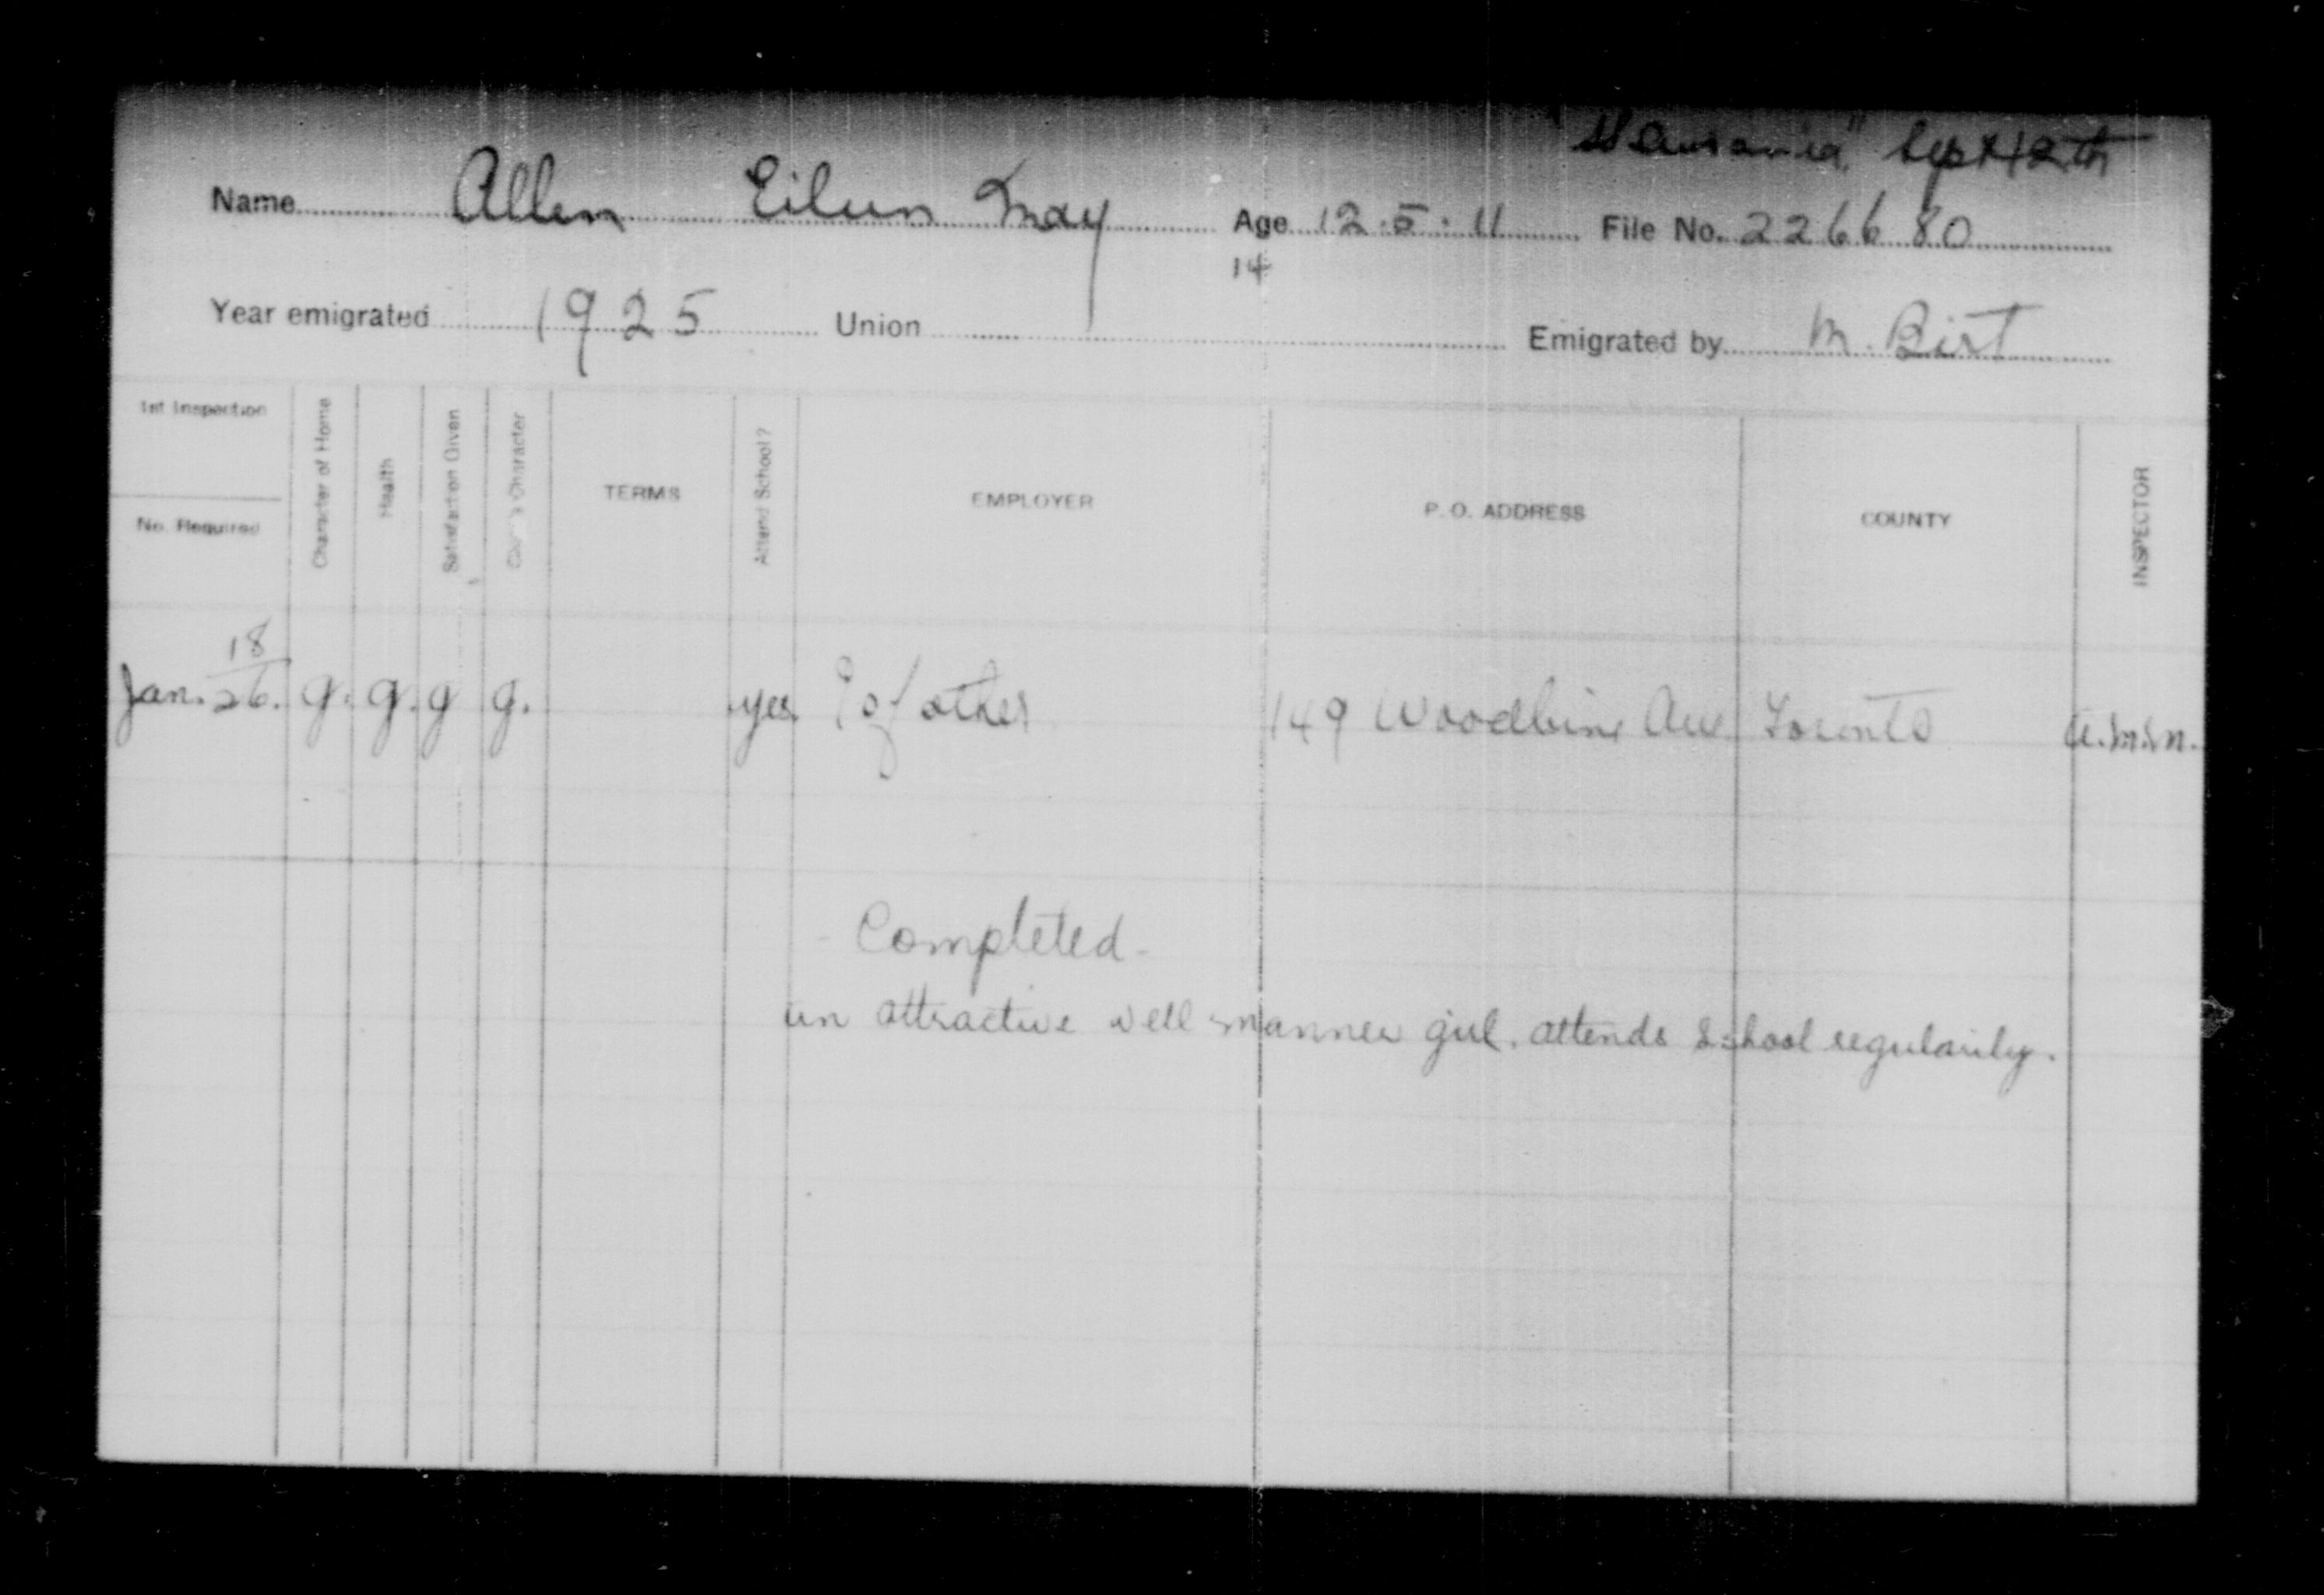 "Ausania" Sept 12th
Name Allen Eileen May Age 12.5.11 File No. 226680
14
Year emigrated 1925 Union Emigrated by M. Birt
1st Inspection
No. Required
Character of Home
Health
Satisfaction Given
Character
TERMS
Attend School?
EMPLOYER
P. O. ADDRESS
COUNTY
INSPECTOR
Jan. 18/26. g. g. g g. yes. father 149 Woodbine Ave Toronto
Completed -
an attractive well manner girl. attends school regularily.